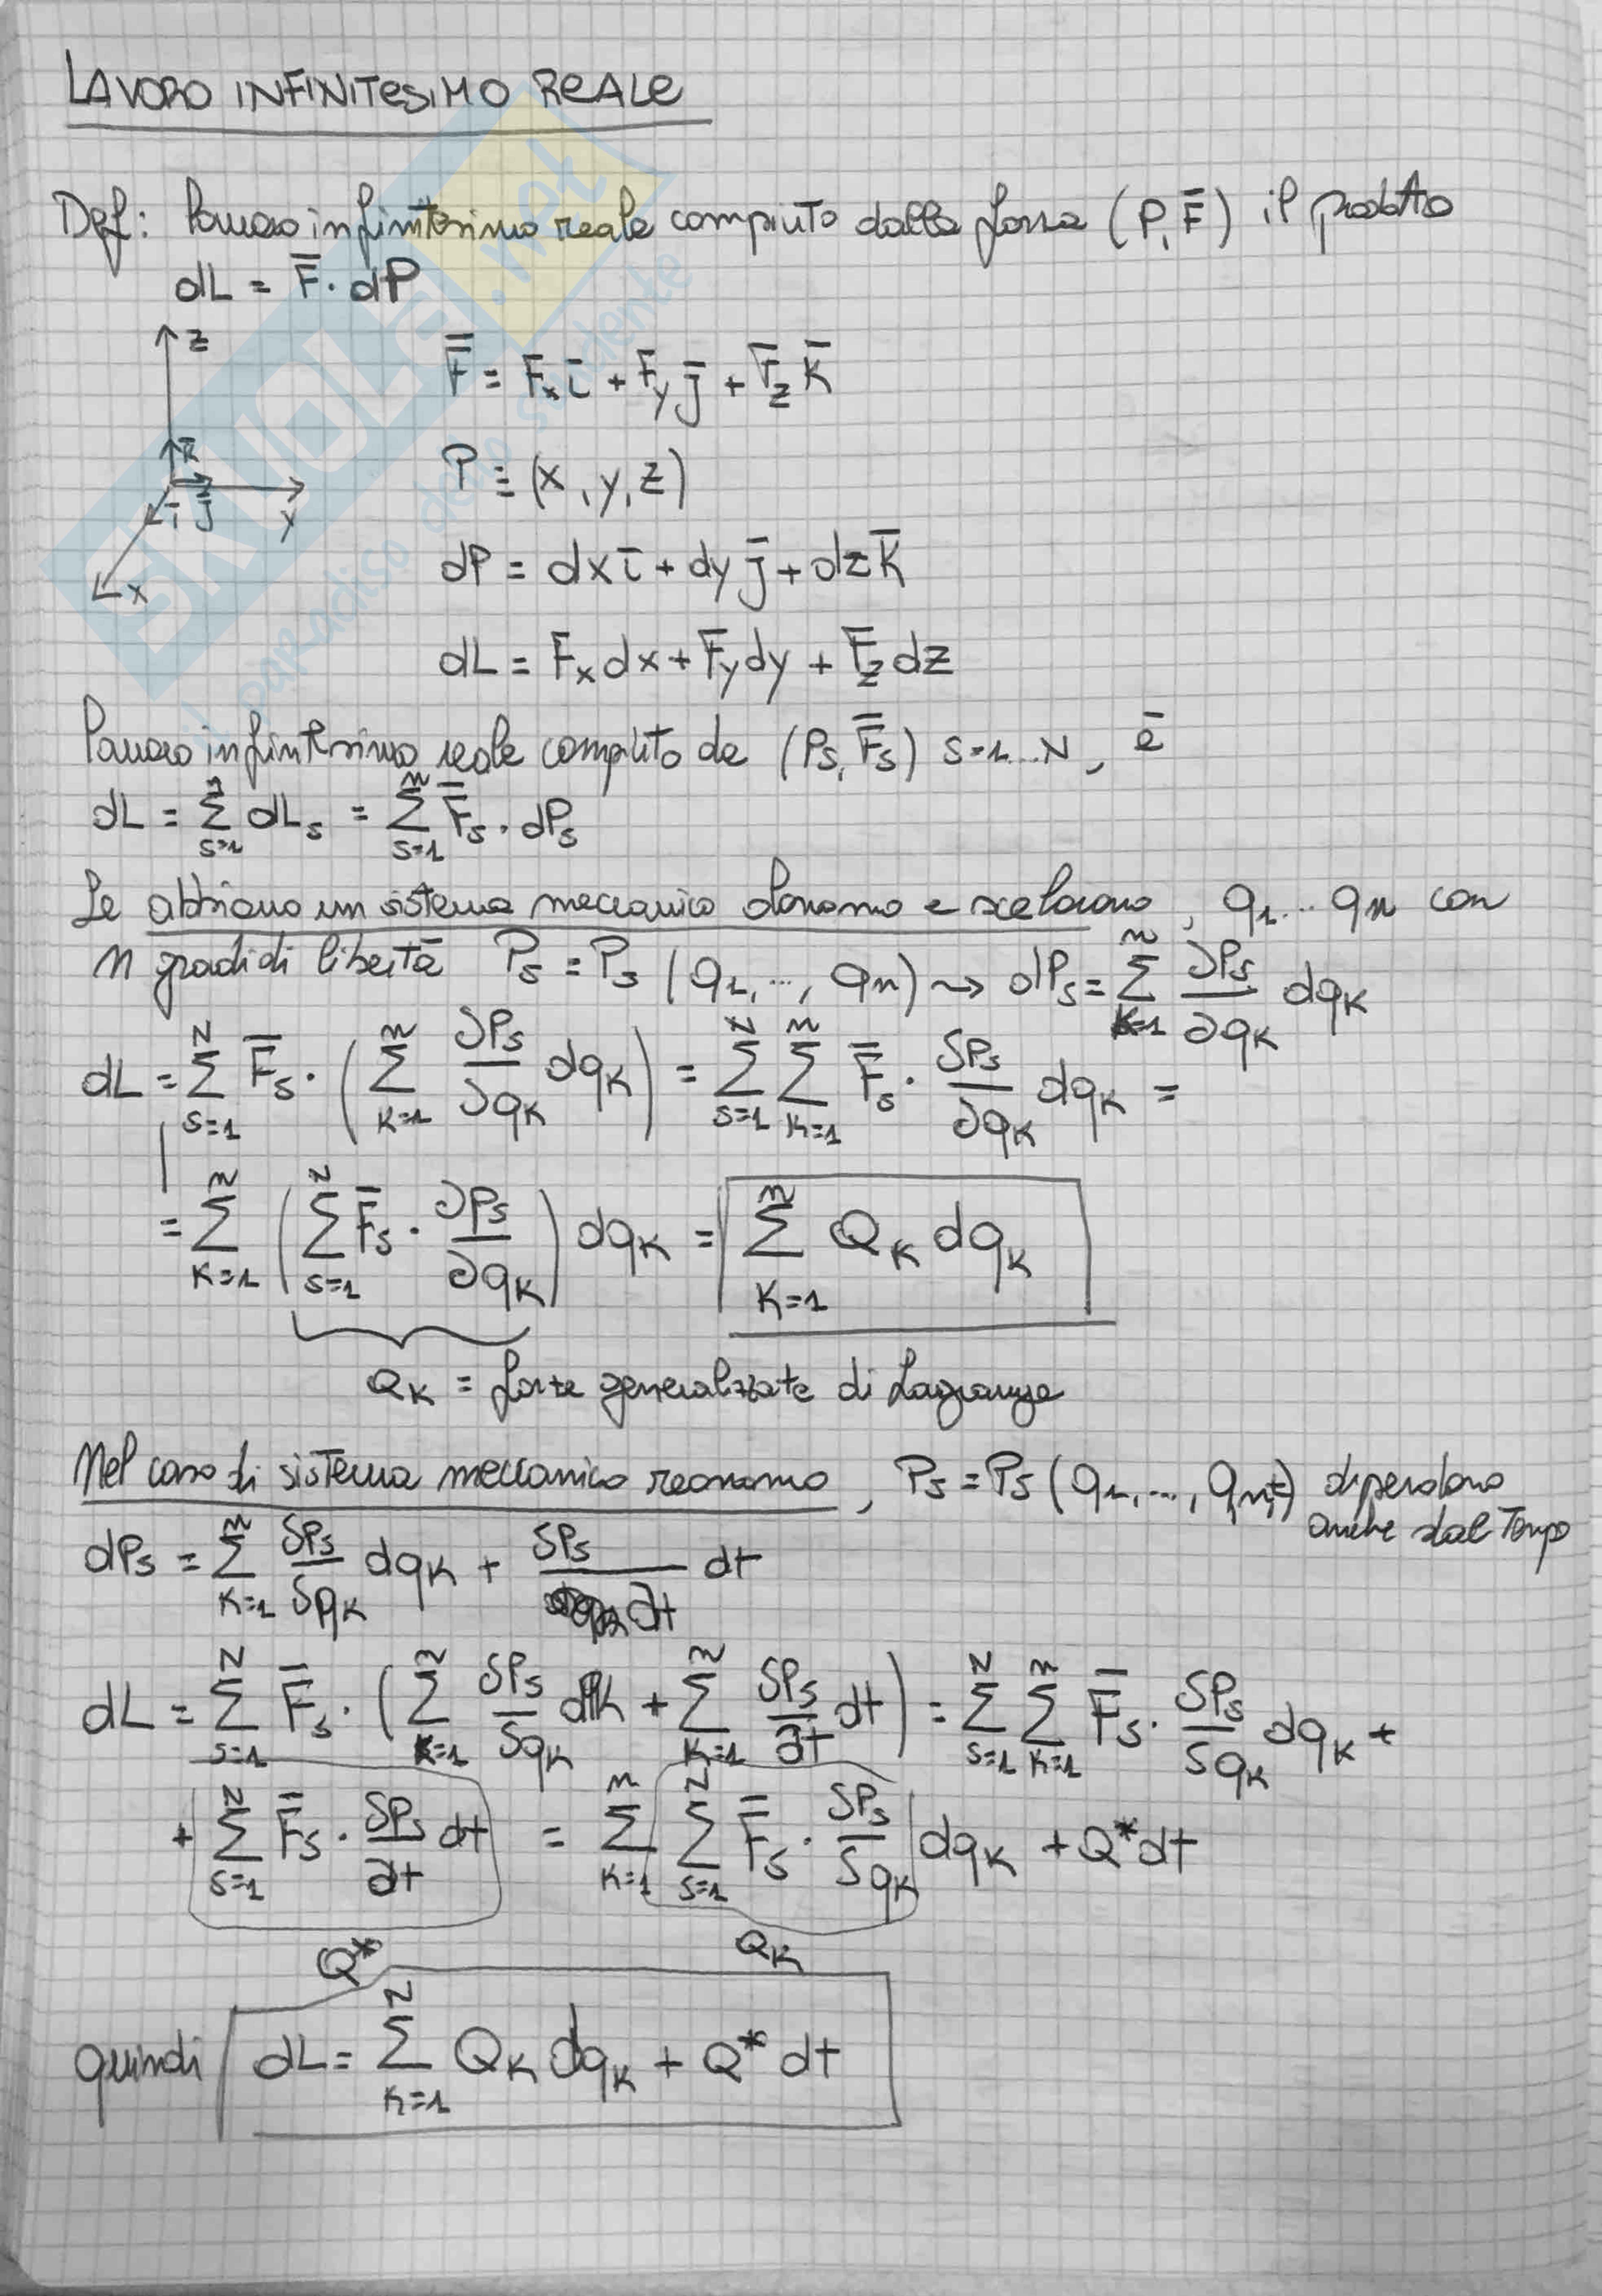 LAVORO INFINITESIMO REALE
Def: lavoro infinitesimo reale compiuto dalla forza (P, F̄) il prodotto
dL = F̄ · dP
z
F̄ = Fx ī + Fy j̄ + Fz k̄
k̄
P ≡ (x, y, z)
ī j̄ y
x
dP = dx ī + dy j̄ + dz k̄
dL = Fx dx + Fy dy + Fz dz
lavoro infinitesimo reale compiuto da (Ps, F̄s) s=1...N, è
dL = Σ_{s=1}^{n} dLs = Σ_{s=1}^{n} F̄s · dPs
Se abbiamo un sistema meccanico olonomo e scleronomo, q1...qn con
n gradi di libertà Ps = Ps (q1, ..., qn) ⇝ dPs = Σ_{k=1}^{n} ∂Ps/∂qk dqk
dL = Σ_{s=1}^{N} F̄s · (Σ_{k=1}^{n} ∂Ps/∂qk dqk) = Σ_{s=1}^{N} Σ_{k=1}^{n} F̄s · ∂Ps/∂qk dqk =
= Σ_{k=1}^{n} (Σ_{s=1}^{N} F̄s · ∂Ps/∂qk) dqk = Σ_{k=1}^{n} Qk dqk
Qk = forze generalizzate di Lagrange
Nel caso di sistema meccanico reonomo, Ps = Ps (q1, ..., qn, t) dipendono
anche dal tempo
dPs = Σ_{k=1}^{n} ∂Ps/∂qk dqk + ∂Ps/∂t dt
dL = Σ_{s=1}^{N} F̄s · (Σ_{k=1}^{n} ∂Ps/∂qk dqk + Σ_{k=1}^{n} ∂Ps/∂t dt) = Σ_{s=1}^{N} Σ_{k=1}^{n} F̄s · ∂Ps/∂qk dqk +
+ Σ_{s=1}^{N} F̄s · ∂Ps/∂t dt = Σ_{k=1}^{n} Σ_{s=1}^{N} F̄s · ∂Ps/∂qk dqk + Q* dt
Q* Qk
quindi dL = Σ_{k=1}^{N} Qk dqk + Q* dt
SKUOLA.net
il paradiso dello studente